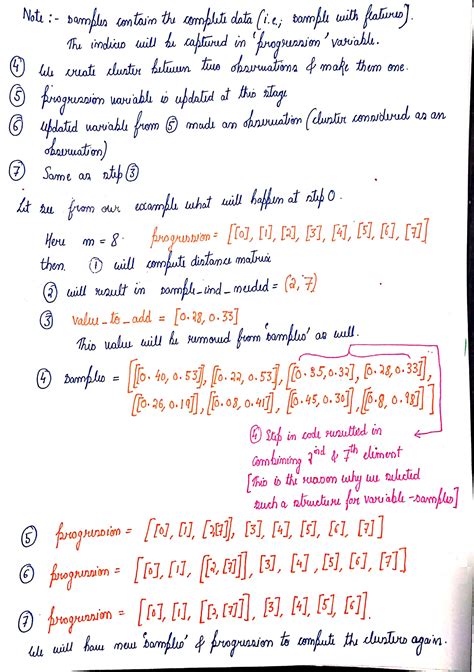 Note :- samples contain the complete data (i.e; sample with features).
The indices will be captured in 'progression' variable.
④ We create cluster between two observations & make them one.
⑤ progression variable is updated at this stage
⑥ updated variable from ⑤ made an observation (cluster considered as an
observation)
⑦ Same as step ③
Let see from our example what will happen at step 0.
Here m = 8. progression = [[0], [1], [2], [3], [4], [5], [6], [7]]
then. ① will compute distance matrix
② will result in sample_ind_needed = (2, 7)
③ value_to_add = [0.28, 0.33]
This value will be removed from 'samples' as well.
④ samples = [[[0.40, 0.53]], [[0.22, 0.53]], [[0.35, 0.32], [0.28, 0.33]],
[[0.26, 0.19]], [[0.08, 0.41]], [[0.45, 0.30]], [[0.8, 0.98]]]
④ Step in code resulted in
combining 2nd & 7th element
[This is the reason why we selected
such a structure for variable - samples]
⑤ progression = [[0], [1], [2[7]], [3], [4], [5], [6], [7]]
⑥ progression = [[0], [1], [[2, [7]]], [3], [4], [5], [6], [7]]
⑦ progression = [[0], [1], [[2, [7]]], [3], [4], [5], [6]].
We will have new 'samples' & progression to compute the clusters again.